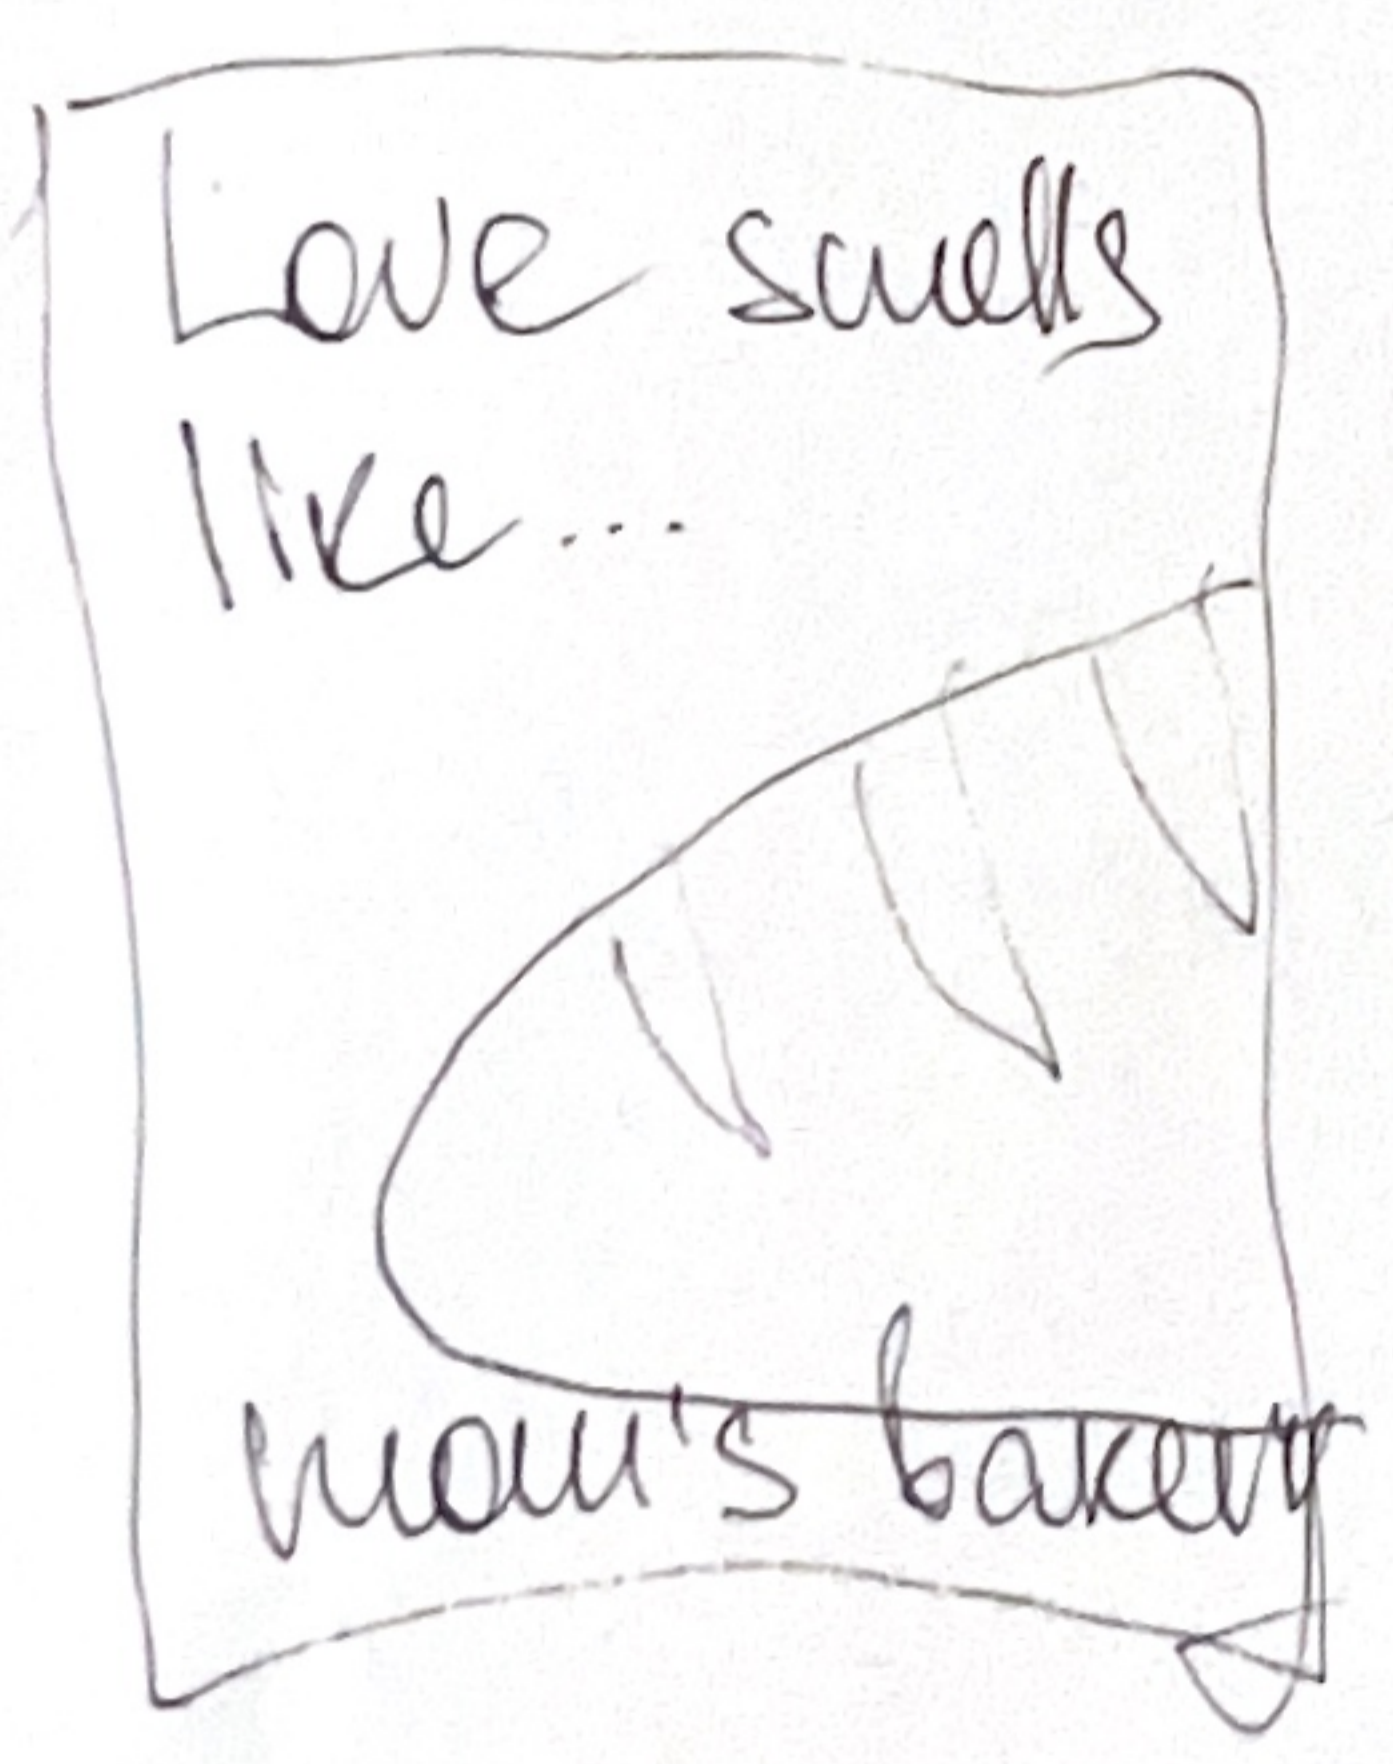 Love smells
like...
mom's bakery